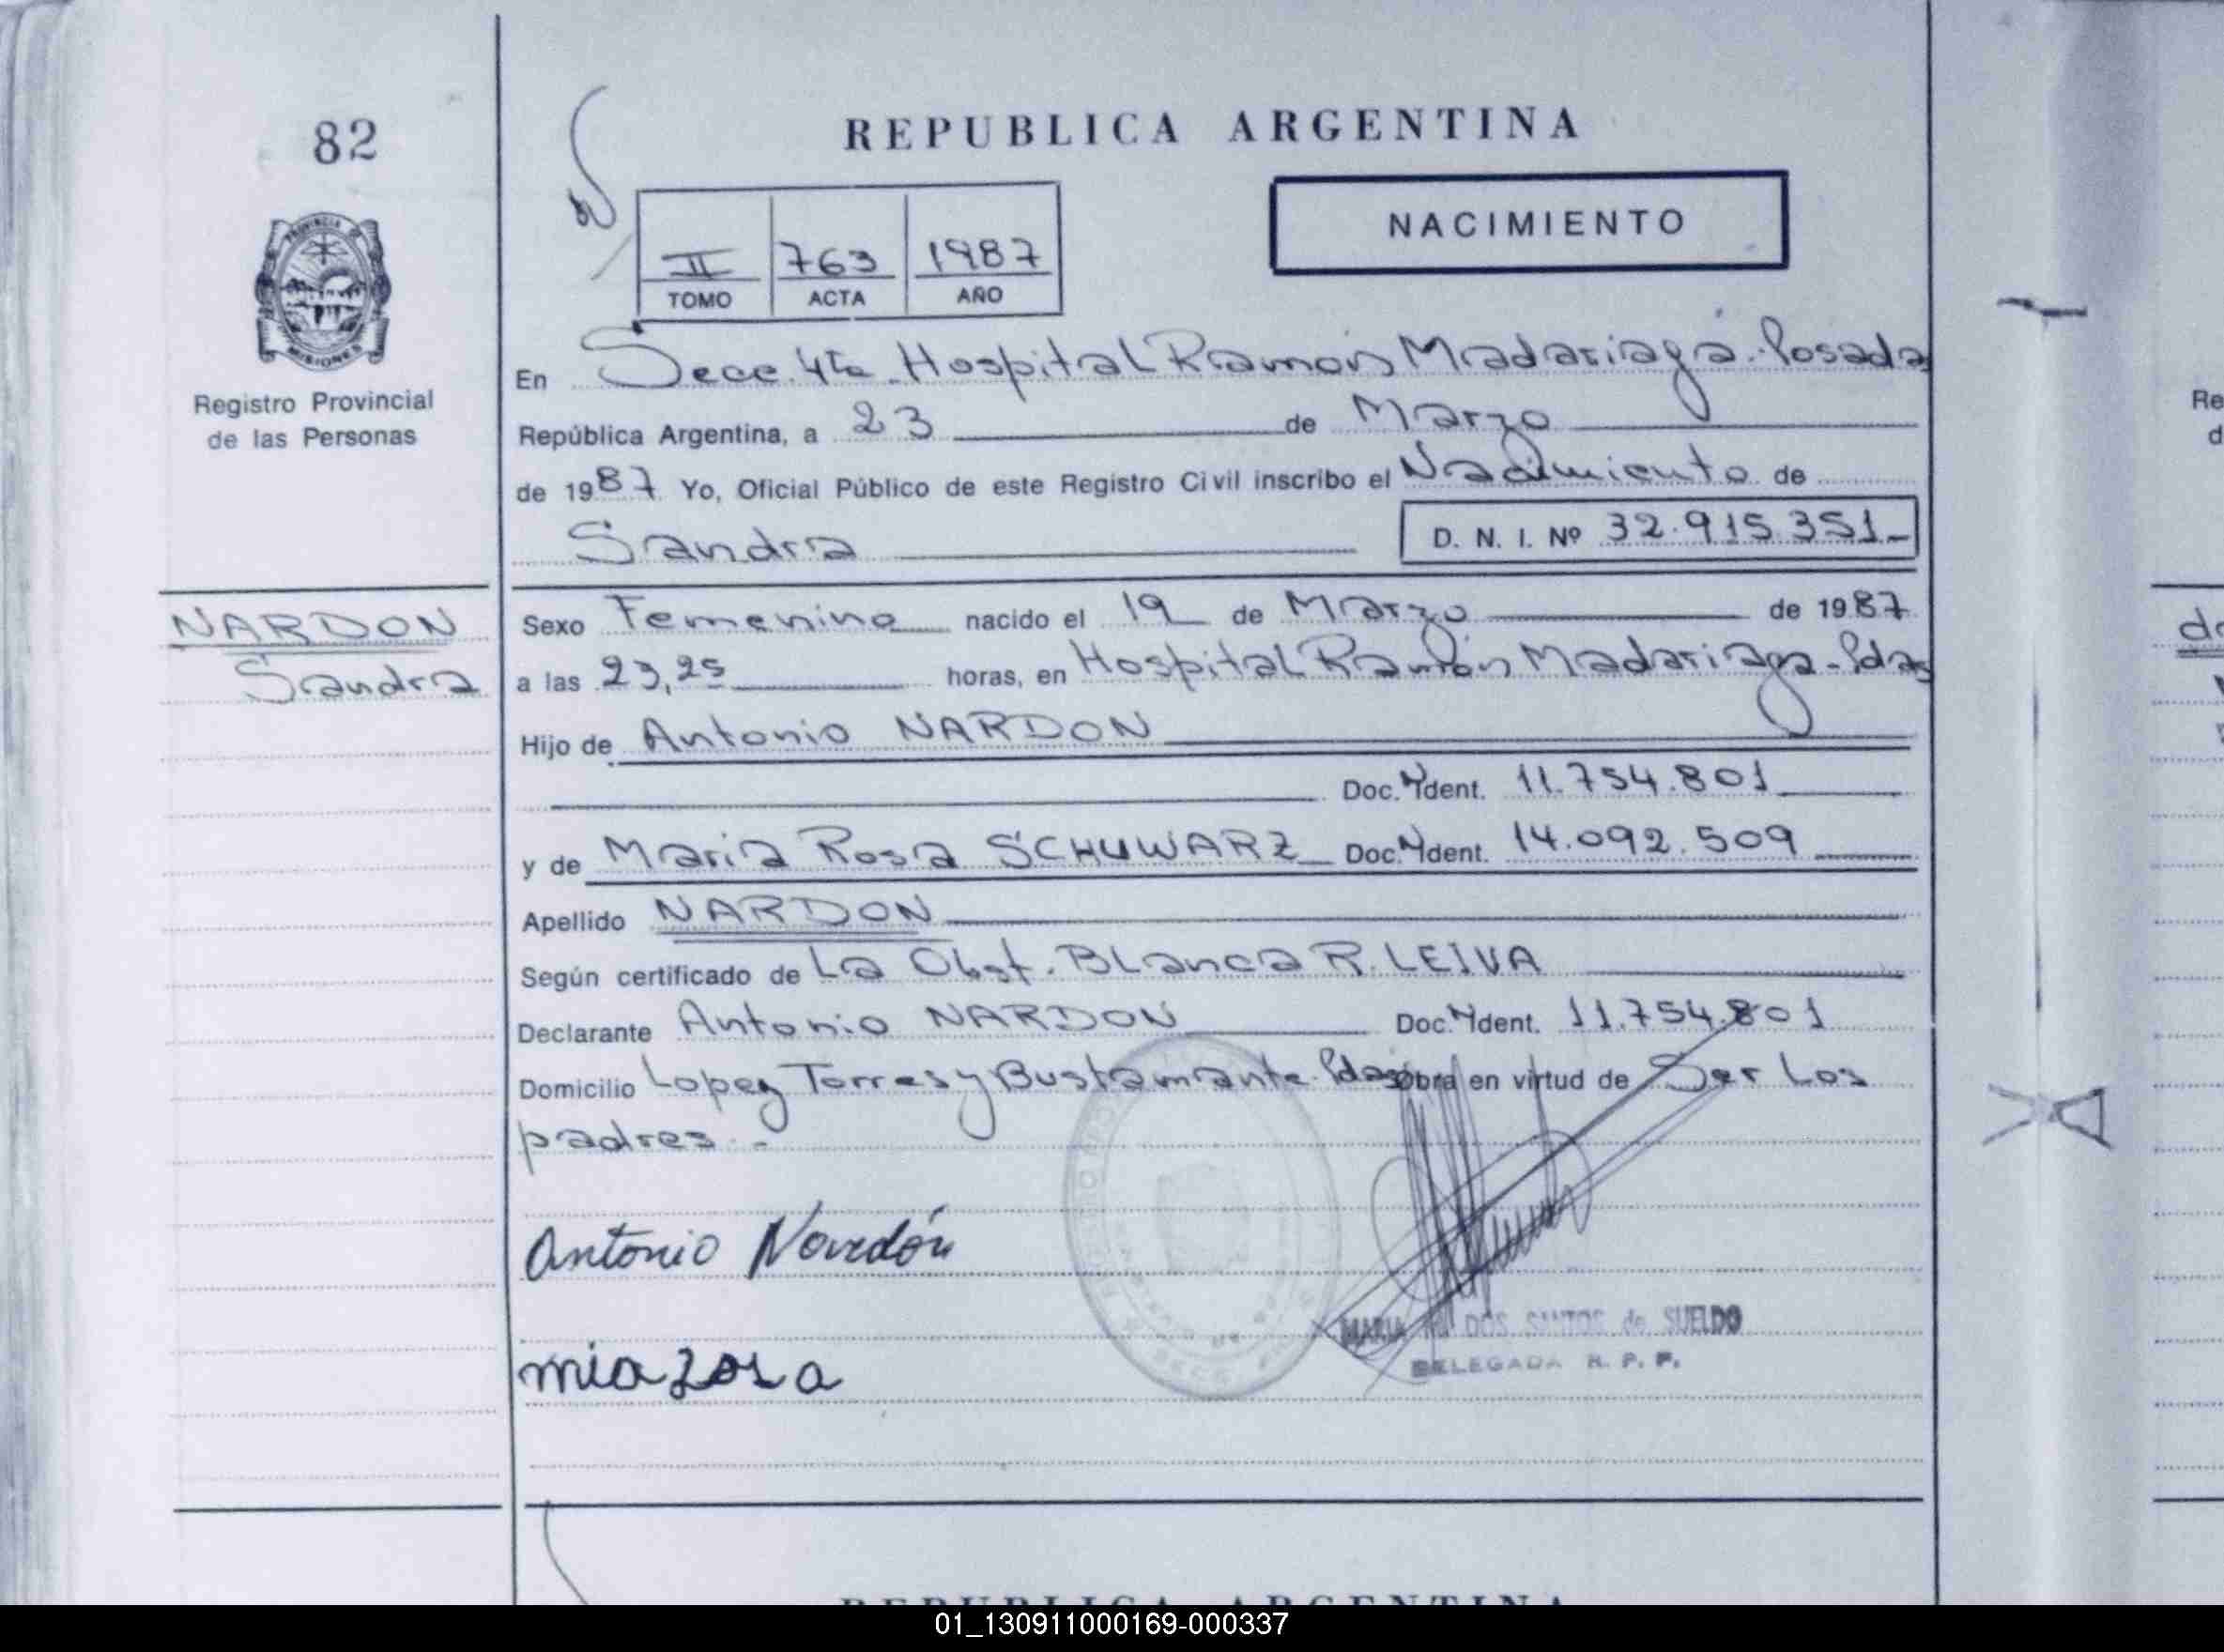 82
REPUBLICA ARGENTINA
NACIMIENTO
II 763 1987
TOMO ACTA AÑO
PROVINCIA DE
MISIONES
Registro Provincial
de las Personas
En Secc. 4ta. Hospital Ramón Madariaga. Posadas
República Argentina, a 23 de Marzo
de 1987 Yo, Oficial Público de este Registro Civil inscribo el Nacimiento de
Sandra D. N. I. Nº 32.915.351-
NARDON
Sandra
Sexo Femenino nacido el 19 de Marzo de 1987
a las 23,25 horas, en Hospital Ramón Madariaga - Pdas
Hijo de Antonio NARDON
Doc. Ident. 11.754.801
y de Maria Rosa SCHUWARZ Doc. Ident. 14.092.509
Apellido NARDON
Según certificado de La Obst. Blanca R. LEIVA
Declarante Antonio NARDON Doc. Ident. 11.754.801
Domicilio Lopez Torres y Bustamante. Pdas Obra en virtud de Ser Los
padres.-
Antonio Nardón
MARIA DOS SANTOS de SUELDO
DELEGADA R. P. P.
REPUBLICA ARGENTINA
01_130911000169-000337